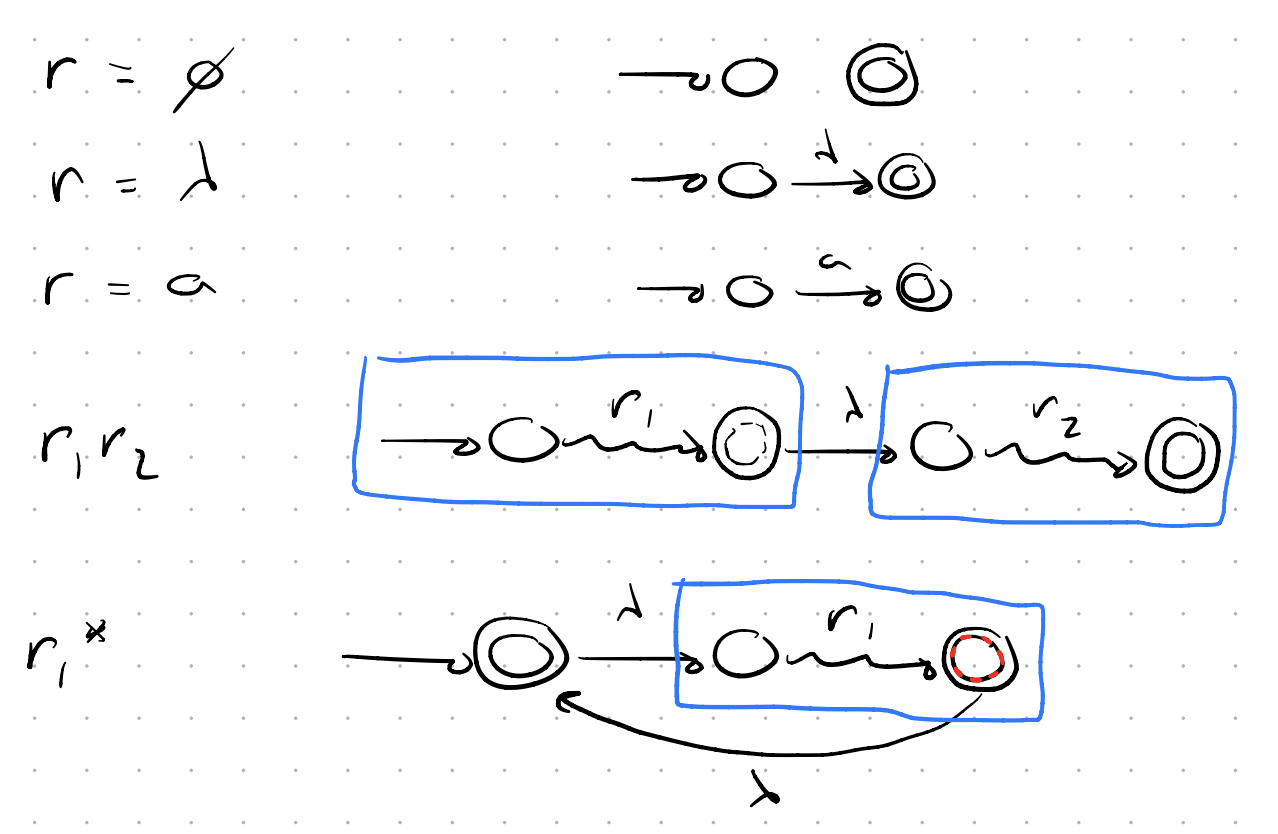 r = ∅
r = λ λ
r = a a
r₁r₂ r₁ λ r₂
r₁* λ r₁
λ